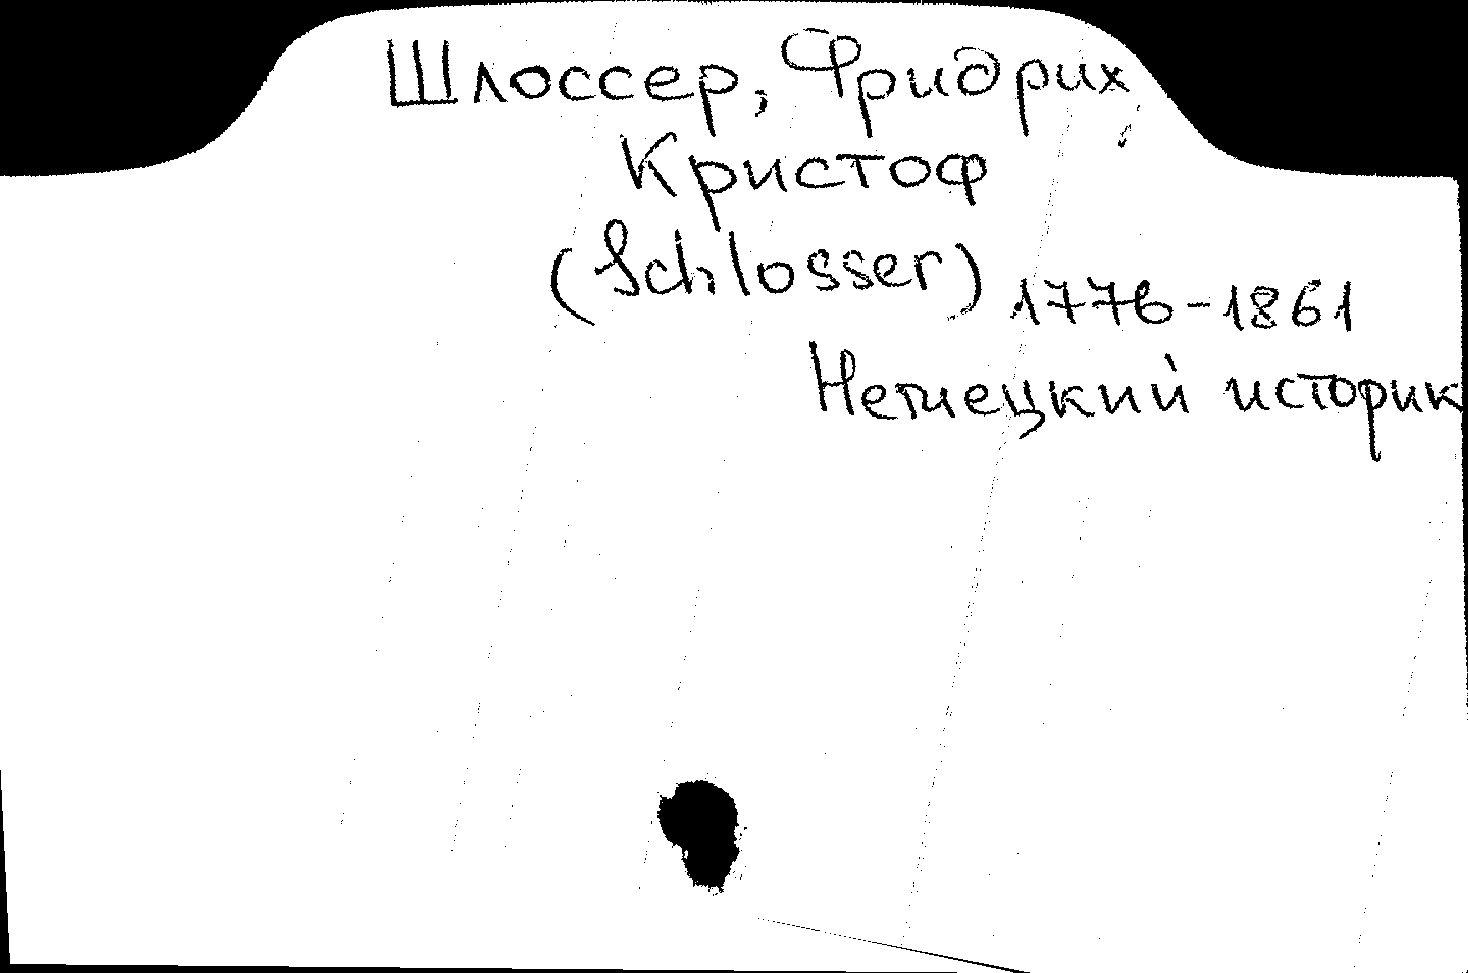 Шлоссер, Фридрих
Кристоф
(Schlosser) 1776-1861
Немецкий историк